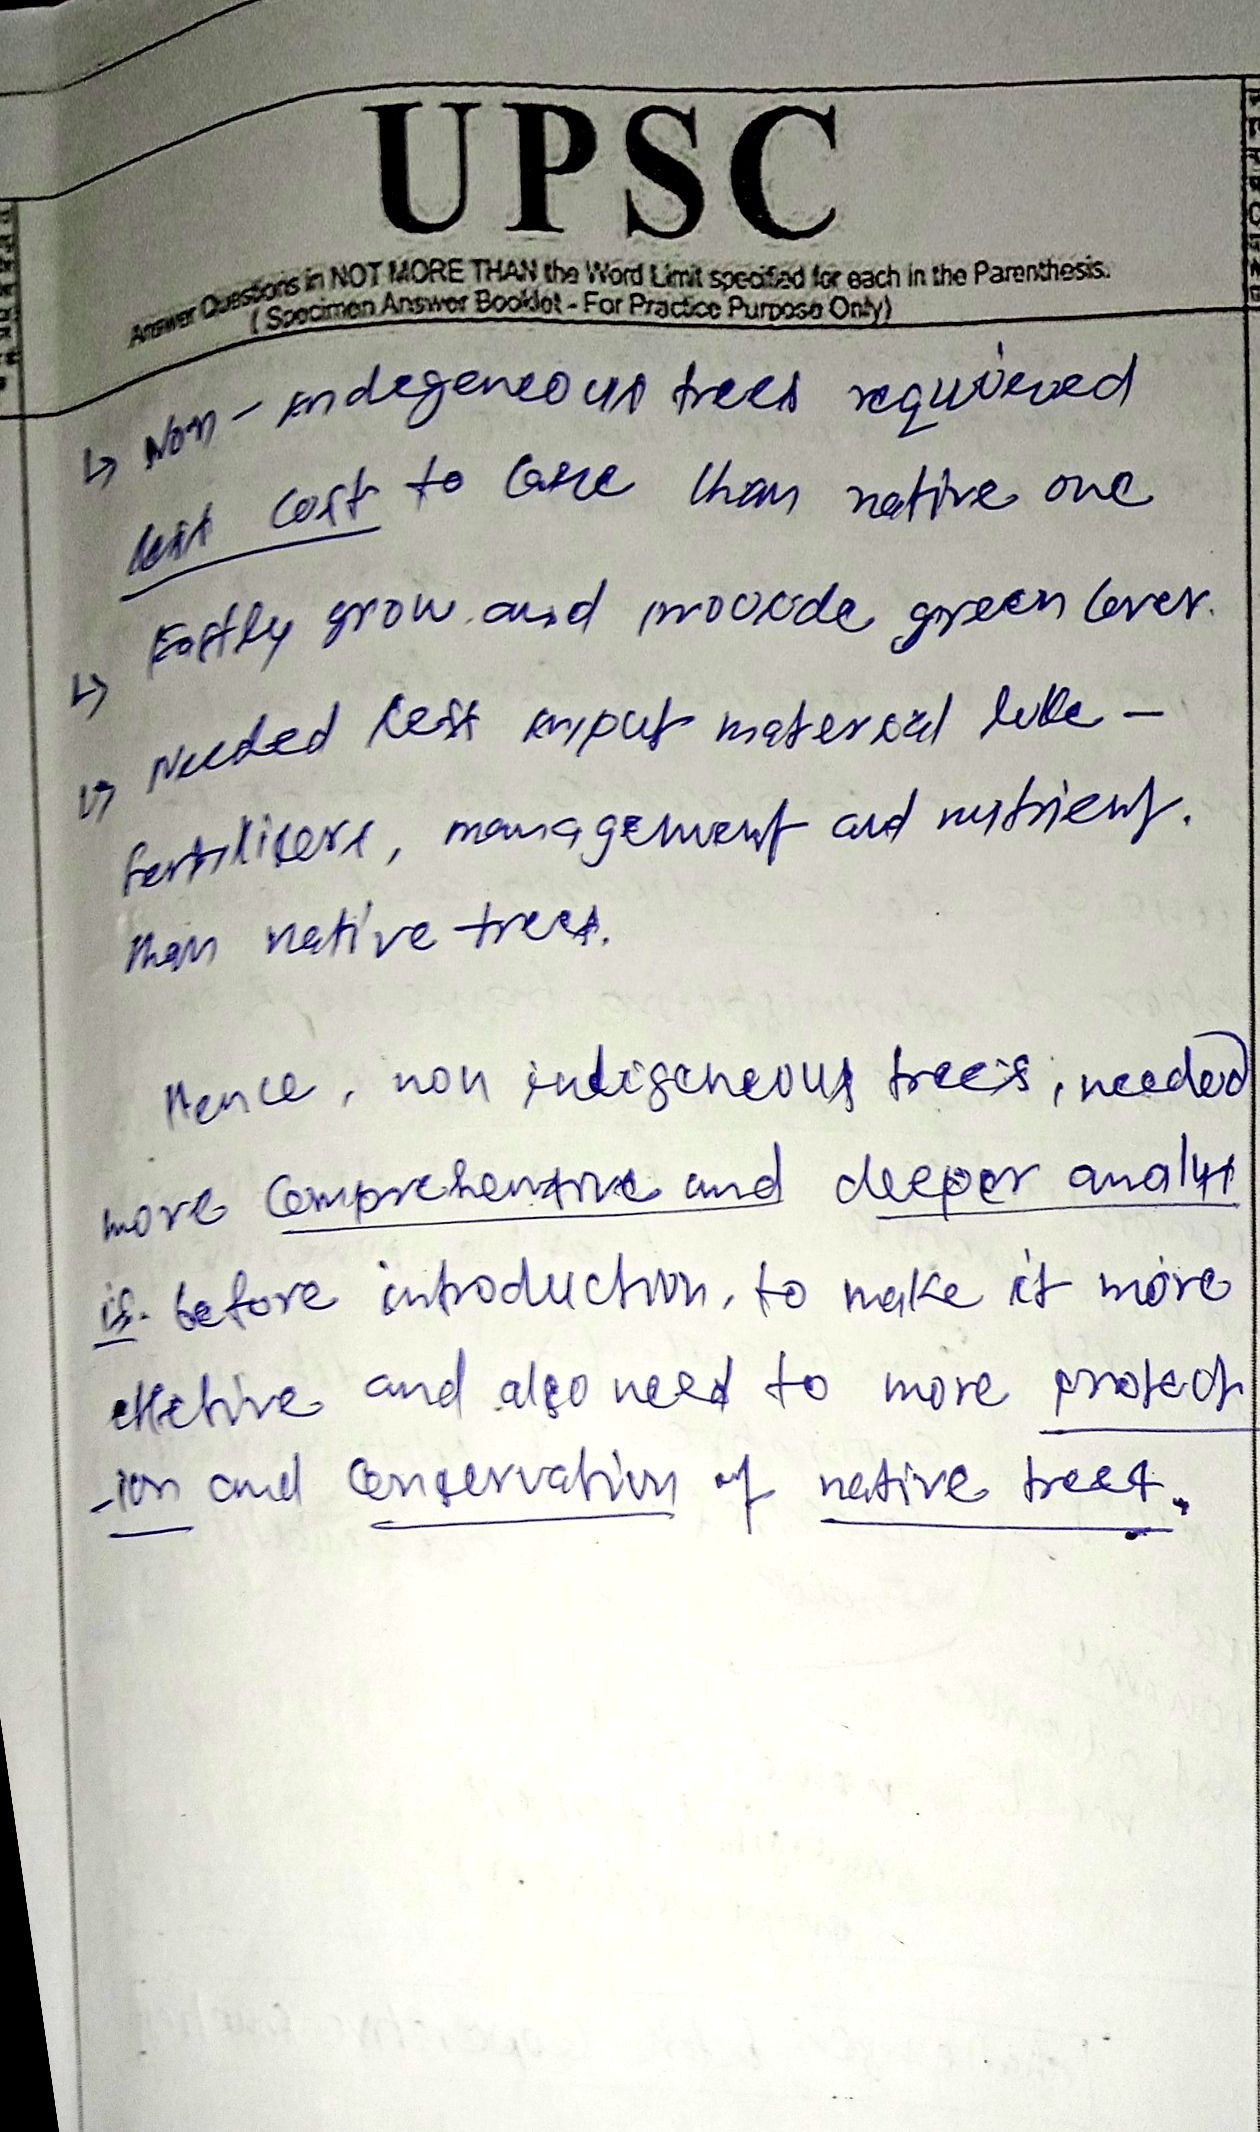 UPSC
Answer Questions in NOT MORE THAN the Word Limit specified for each in the Parenthesis.
( Specimen Answer Booklet - For Practice Purpose Only)
↳ Non - indegeneous trees requiered
less cost to care than native one
↳ Fastly grow and provide green cover.
↳ Needed less input material like -
fertilisers, management and nutrient.
than native trees.
Hence, non indigeneous trees, needed
more comprehensive and deeper analys
is. before introduction, to make it more
effective and also need to more protect
-ion and conservation of native trees.